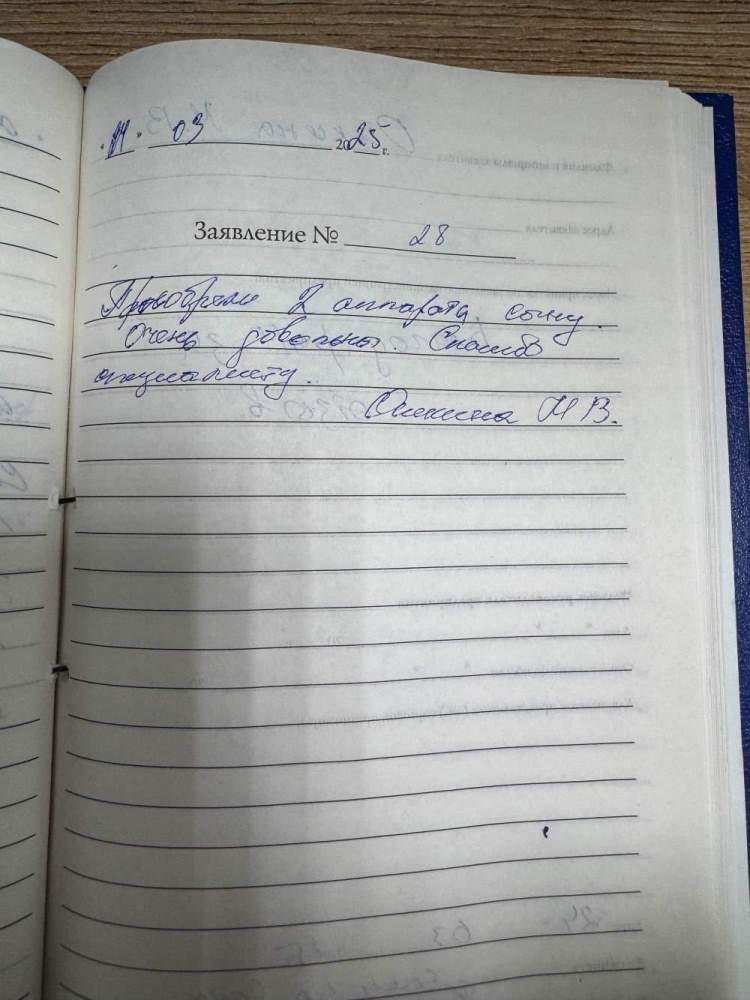 03 2025 г.
Заявление № 28
Приобрели 2 аппарата сыну.
Очень довольны. Спасибо
специалисту.
Н В.